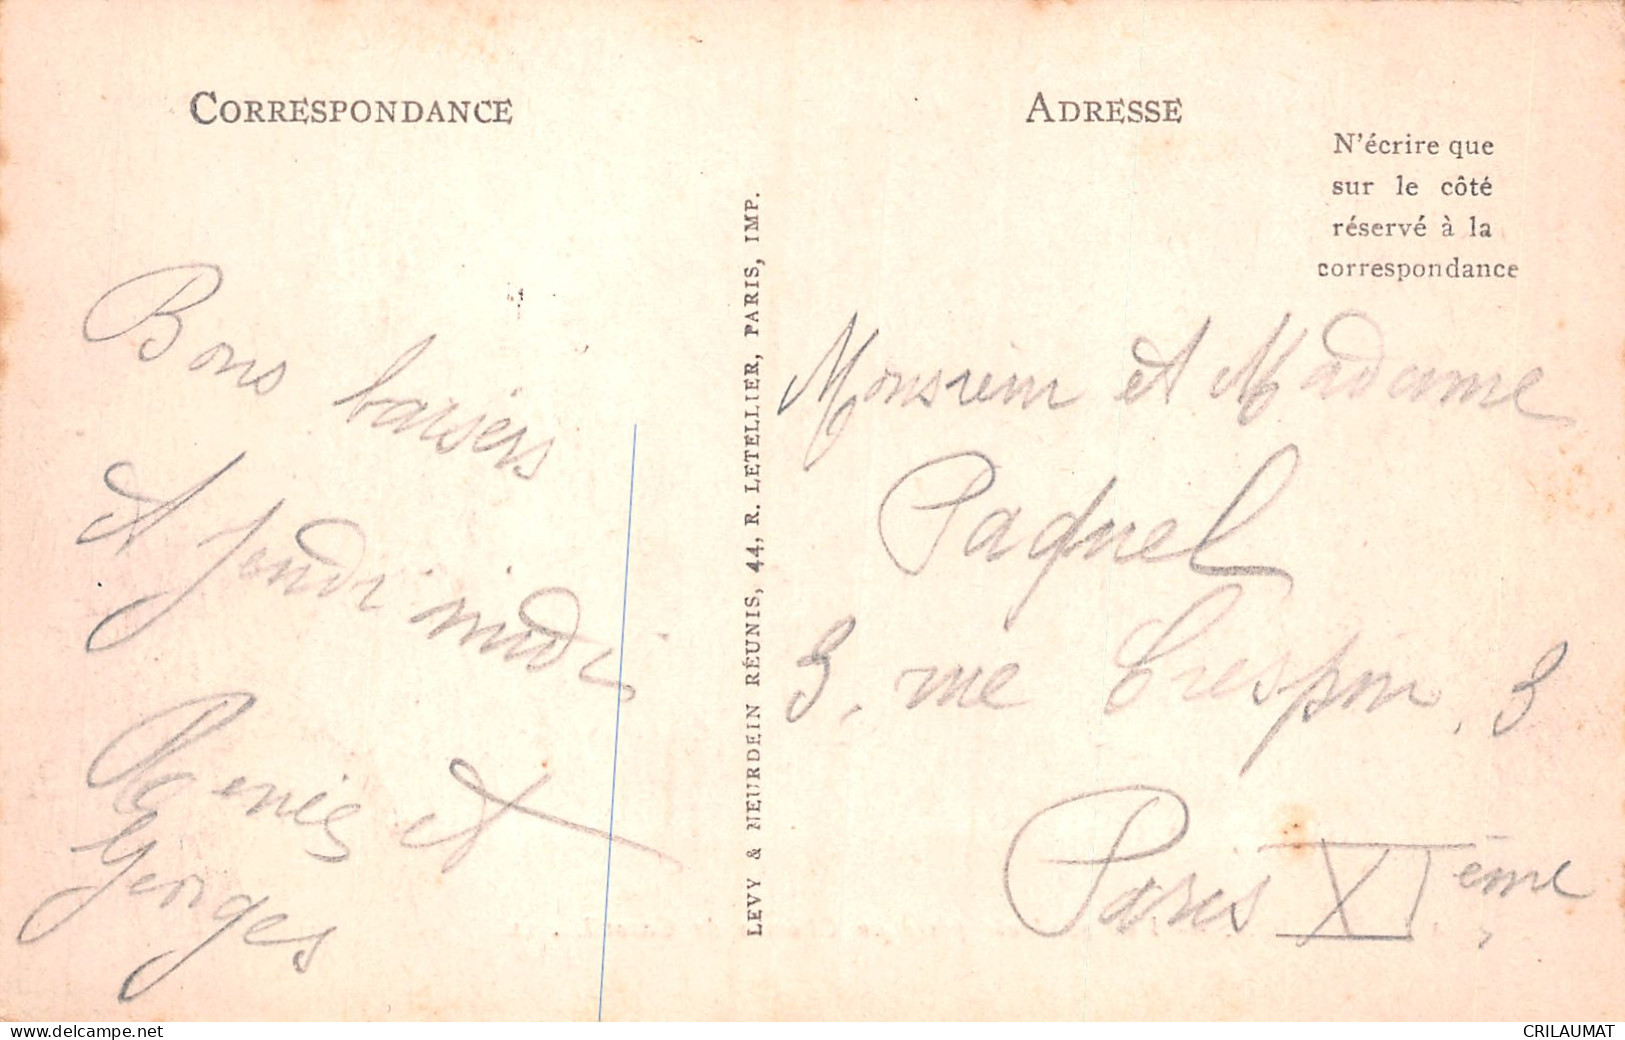 CORRESPONDANCE
Bons baisers
et Jeudi midi
Renée et
Georges
LEVY & NEURDEIN RÉUNIS, 44, R. LETELLIER, PARIS, IMP.
ADRESSE
N'écrire que
sur le côté
réservé à la
correspondance
Monsieur et Madame
Paquel
3, rue Crespin, 3
Paris XIème
www.delcampe.net
CRILAUMAT